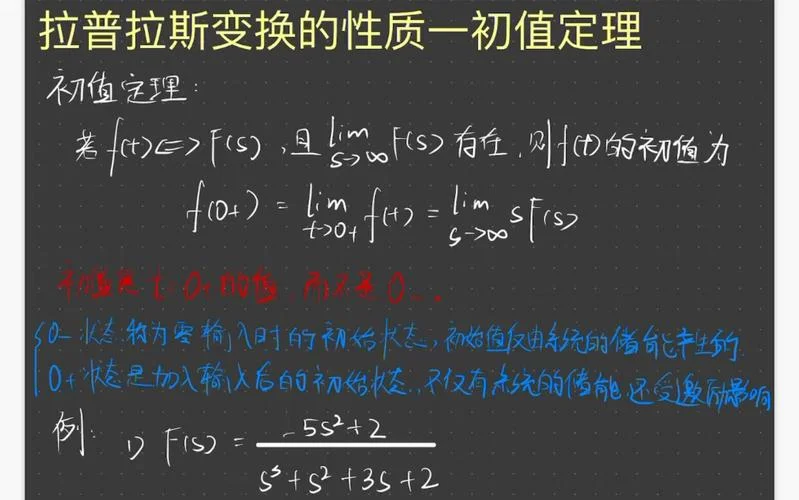 拉普拉斯变换的性质一初值定理
初值定理:
若 f(t)<=>F(s),且 lim s→∞ F(s) 有在,则 f(t) 的初值为
f(0+) = lim t→0+ f(t) = lim s→∞ sF(s)
初值是 t=0+的值,而不是0-
0- 状态称为零输入时的初始状态,初始值仅由系统的储能产生的
0+ 状态是加入输入后的初始状态,不仅有系统的储能,还受激励影响
例: 1) F(s) = -5s²+2 / s³+s²+3s+2